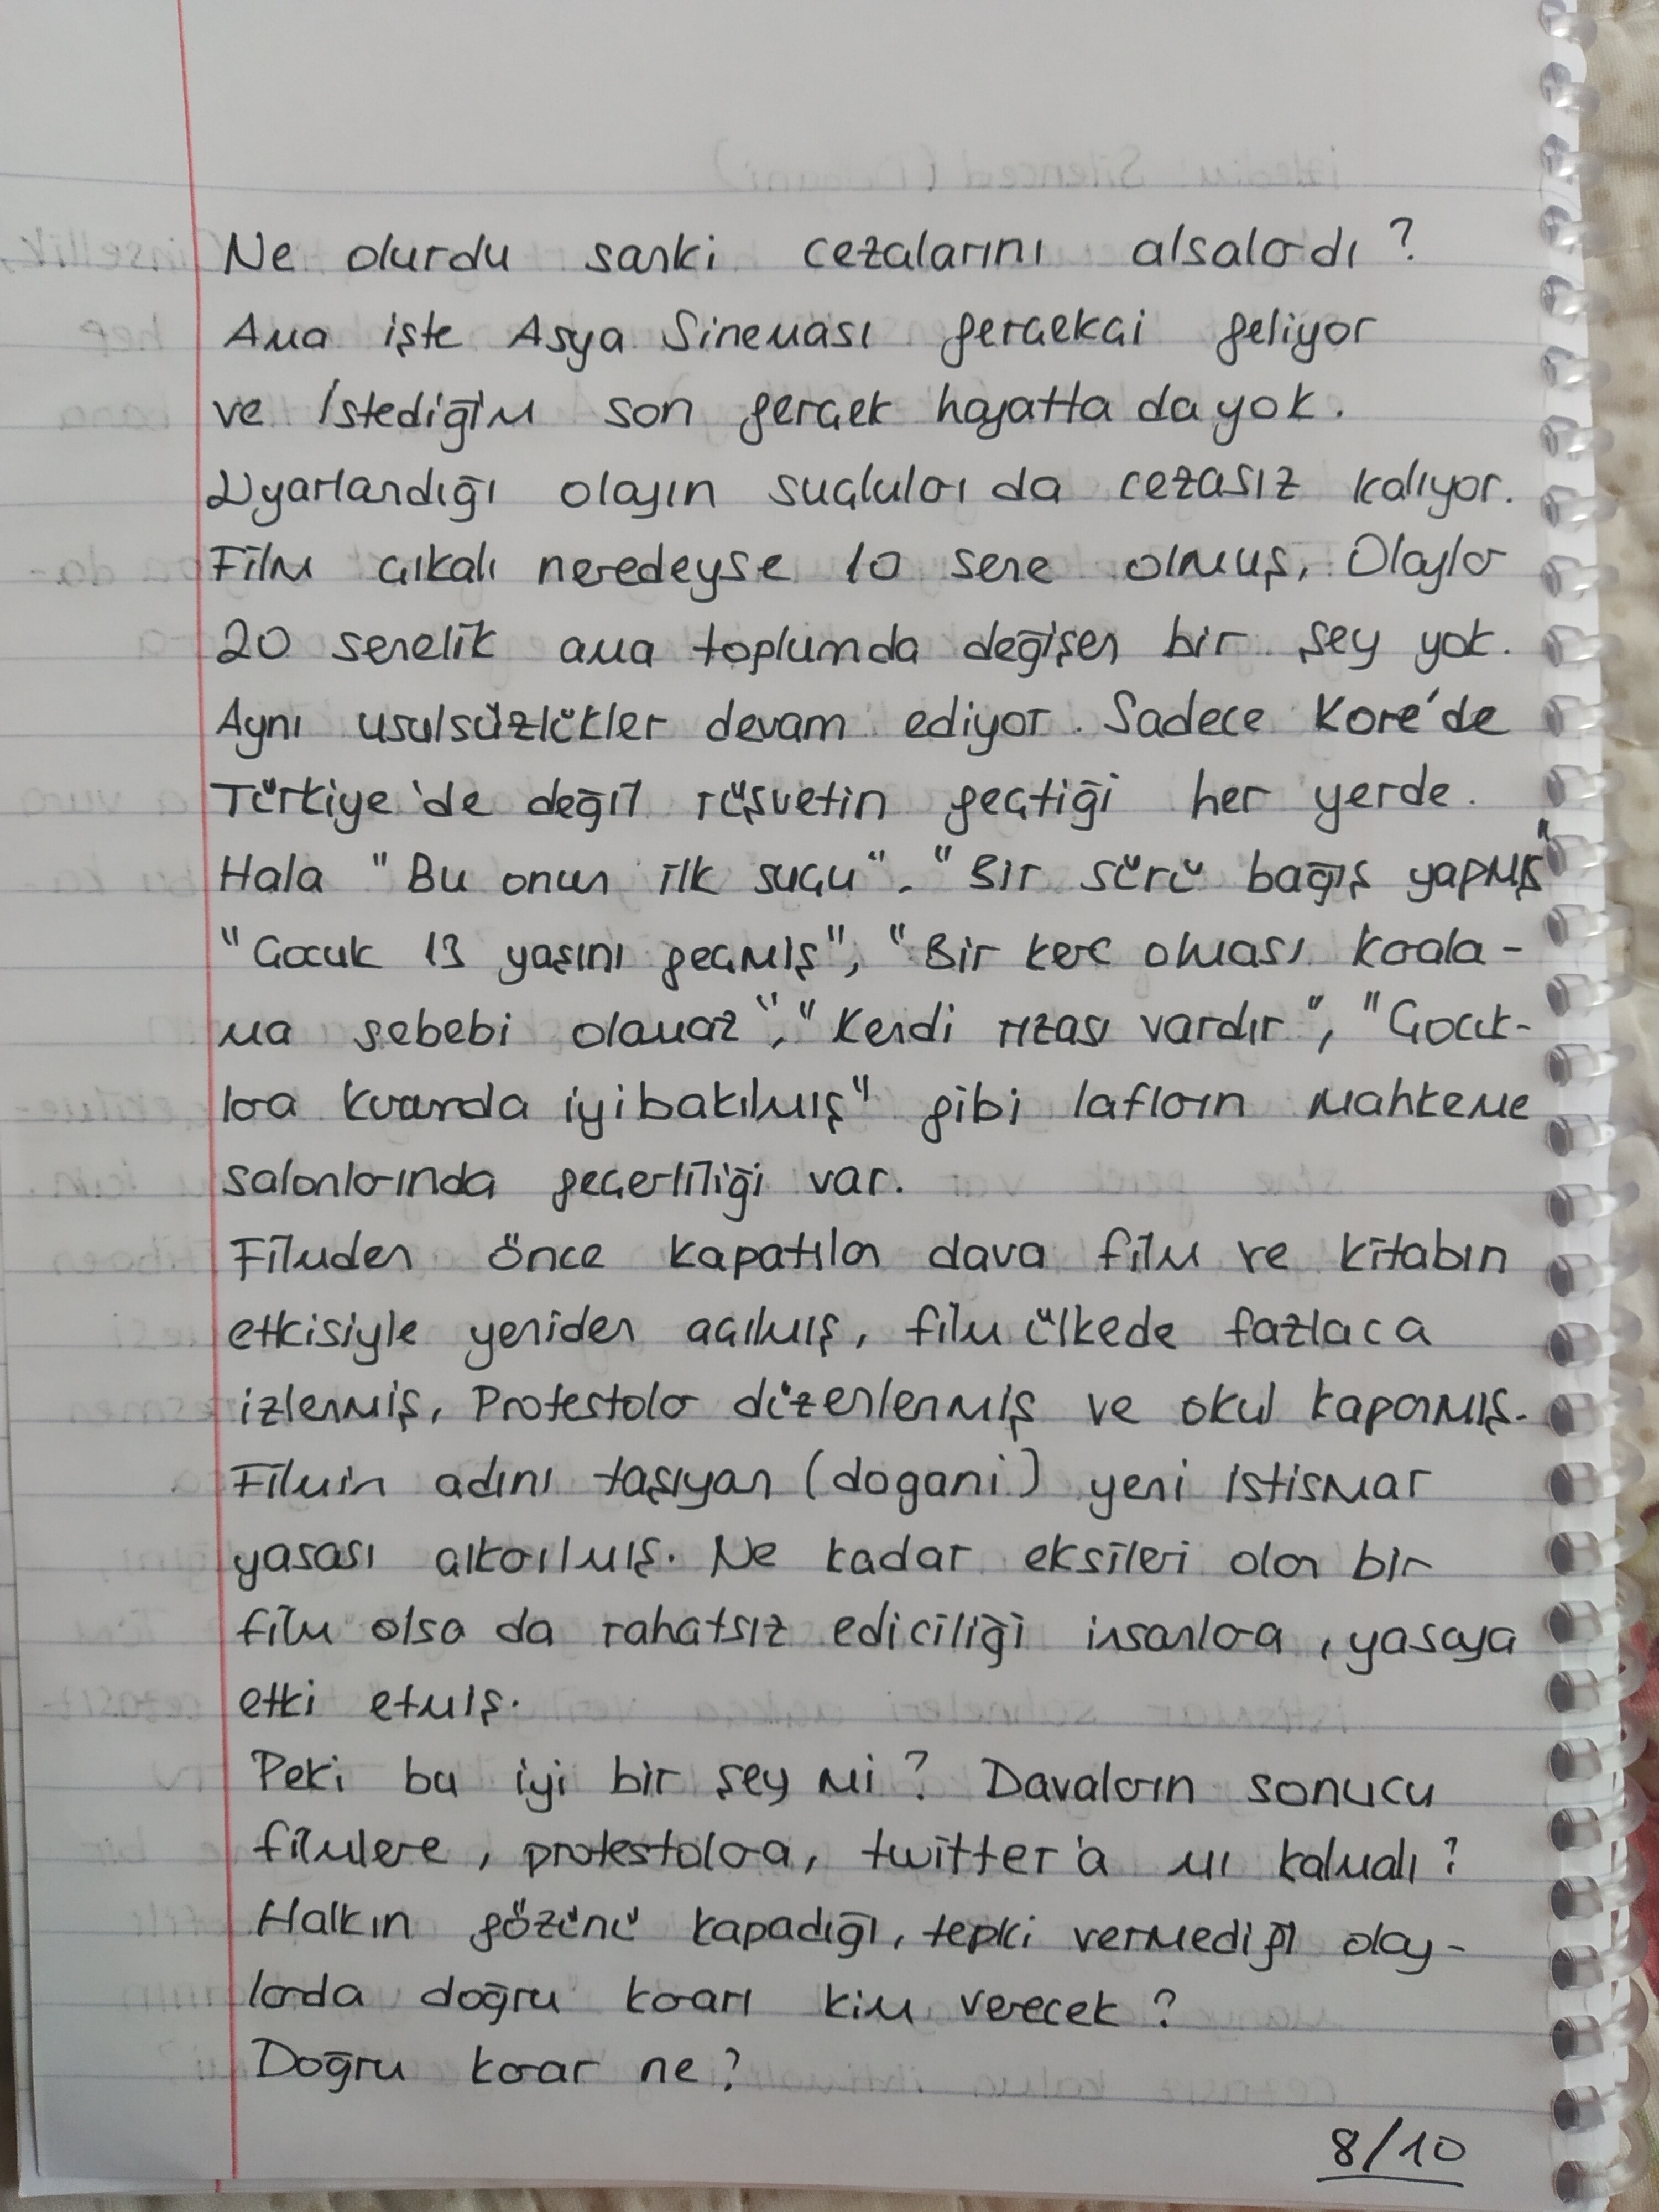 Ne olurdu sanki cezalarını alsalardı?
Ama işte Asya Sineması gerçekçi geliyor
ve istediğim son gerçek hayatta da yok.
Uyarlandığı olayın suçluları da cezasız kalıyor.
Film çıkalı neredeyse 10 sene olmuş, Olaylar
20 senelik ama toplumda değişen bir şey yok.
Aynı usulsüzlükler devam ediyor. Sadece Kore'de
Türkiye'de değil rüşvetin geçtiği her yerde.
Hala "Bu onun ilk suçu". "Bir sürü bağış yapmış"
"Çocuk 13 yaşını geçmiş", "Bir kere olması karala-
ma sebebi olamaz", "Kendi rızası vardır", "Çocuk-
lara kurumda iyi bakılmış" gibi lafların mahkeme
salonlarında geçerliliği var.
Filmden önce kapatılan dava film ve kitabın
etkisiyle yeniden açılmış, film ülkede fazlaca
izlenmiş, Protestolar düzenlenmiş ve okul kapanmış.
Filmin adını taşıyan (dogani) yeni istismar
yasası çıkarılmış. Ne kadar eksileri olan bir
film olsa da rahatsız ediciliği insanlara, yasaya
etki etmiş.
Peki bu iyi bir şey mi? Davaların sonucu
filmlere, protestolara, twitter'a mı kalmalı?
Halkın gözünü kapadığı, tepki vermediği olay-
larda doğru kararı kim verecek?
Doğru karar ne?
8/10